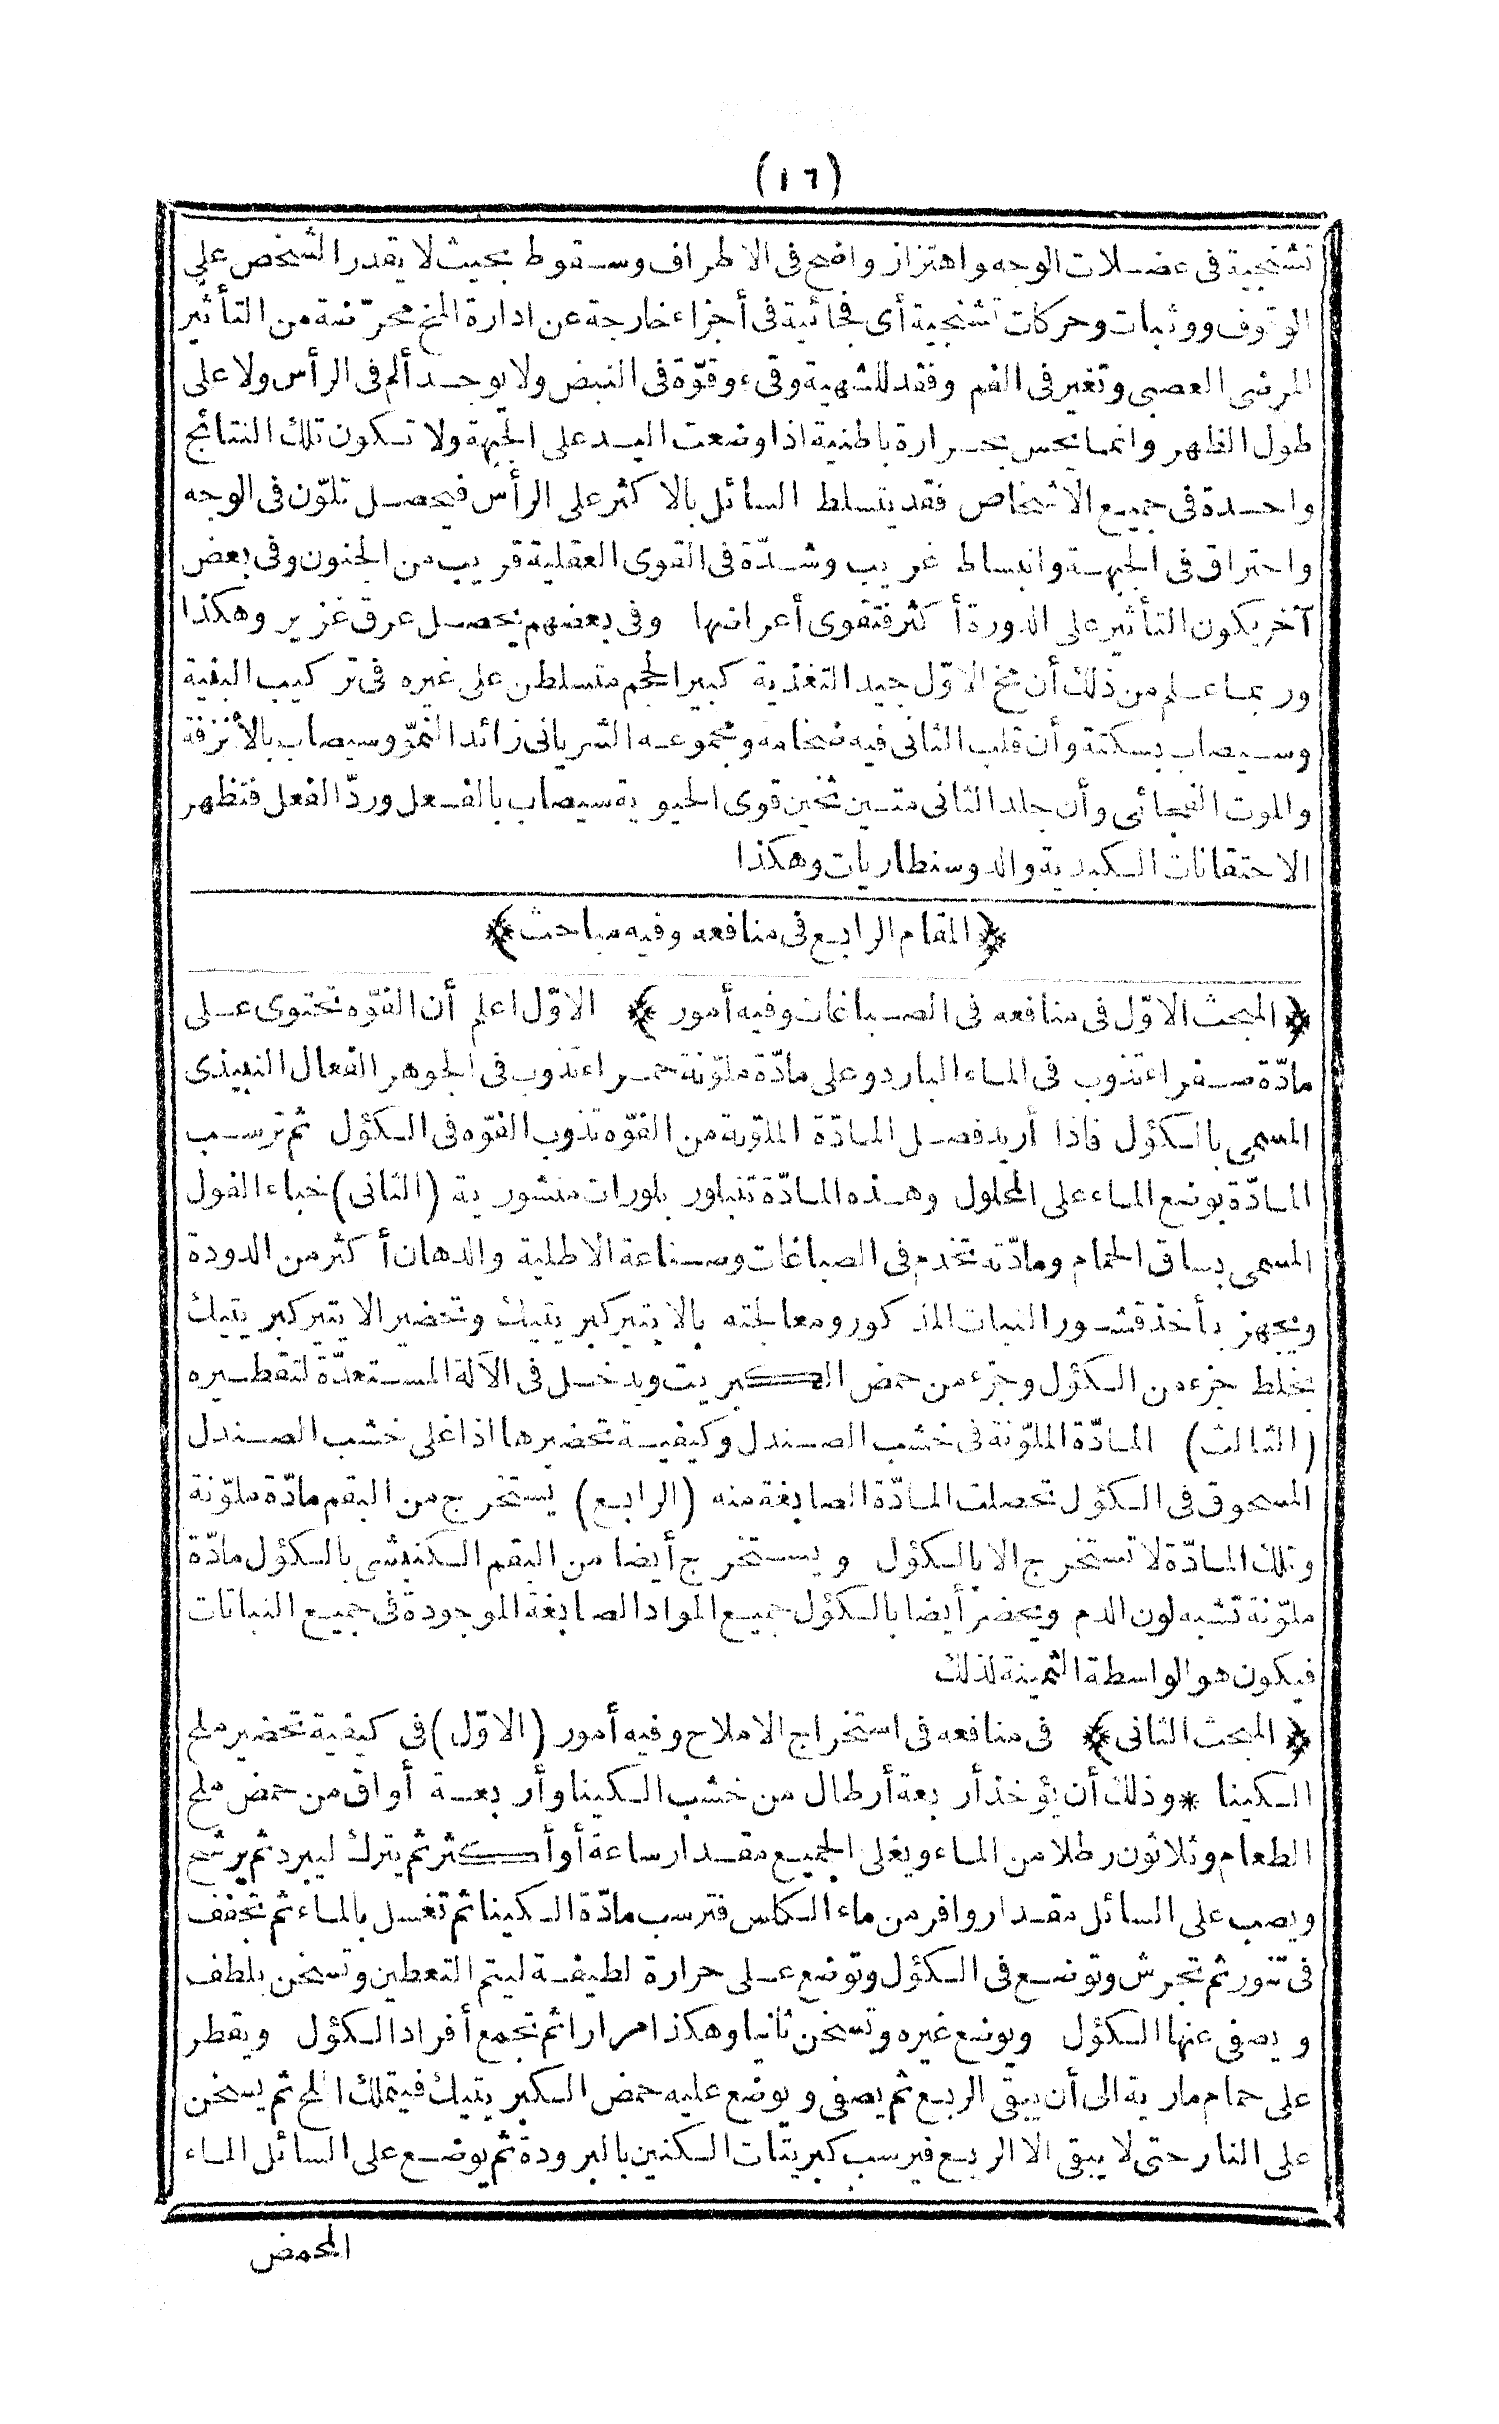 (١٦)
تشنجية فى عضلات الوجه واهتزاز واضح فى الاطراف وسقوط بحيث لا يقدر الشخص على
الوقوف ووثبات وحركات تشنجية أى فجائية فى أجزاء خارجة عن ادارة المخ محرّضة من التأثير
المرضى العصبى وتغير فى الفم وفقد للشهية وقىء وقوّة فى النبض ولا يوجد ألم فى الرأس ولا على
طول الظهر وانما يحس بحرارة باطنية اذا وضعت اليد على الجبهة ولا تكون تلك النتائج
واحدة فى جميع الاشخاص فقد يتسلط السائل بالاكثر على الرأس فيحصل تلوّن فى الوجه
واحتراق فى الجبهة وانبساط غريب وشدّة فى القوى العقلية قريب من الجنون وفى بعض
آخر يكون التأثير على الدورة أكثر فتقوى أعراضها وفى بعضهم يحصل عرق غزير وهكذا
وربما علم من ذلك أن مخ الاوّل جيد التغذية كبير الحجم متسلطن على غيره فى تركيب البنية
وسيصاب بسكتة وأن قلب الثانى فيه ضخامه ومجموعه الشريانى زائد النموّ وسيصاب بالأنزفة
والموت الفجائى وأن جلد الثانى متين ثخين قوى الحيوية سيصاب بالفعل وردّ الفعل فتظهر
الاحتقانات الكبدية والدوسنطاريات وهكذا
﴿المقام الرابع فى منافعه وفيه مباحث﴾
﴿المبحث الاوّل فى منافعه فى الصباغات وفيه أمور﴾ الاوّل اعلم أن الفوّه تحتوى على
مادّة صفراء تذوب فى الماء البارد وعلى مادّة ملوّنة حمراء تذوب فى الجوهر الفعال النبيذى
المسمى بالكؤل فاذا أريد فصل المادّة الملوّنة من الفوّه تذوب الفوّه فى الكؤل ثم ترسب
المادّة بوضع الماء على المحلول وهذه المادّة تتبلور بلورات منشورية (الثانى) خباء الغول
المسمى بساق الحمام ومادّته تخدم فى الصباغات وصناعة الاطلية والدهان أكثر من الدودة
ويجهز بأخذ قشور النبات المذكور ومعالجته بالايتيركبريتيك وتحضير الايتيركبريتيك
بخلط جزء من الكؤل وجزء من حمض الكبريت ويدخل فى الآلة المستعدّة لتقطيره
(الثالث) المادّة الملوّنة فى خشب الصندل وكيفية تحضيرها اذا غلى خشب الصندل
المسحوق فى الكؤل تحصلت المادّة الصابغة منه (الرابع) يستخرج من البقم مادّة ملوّنة
وتلك المادّة لا تستخرج الا بالكؤل ويستخرج أيضا من البقم الكنبشى بالكؤل مادّة
ملوّنة تشبه لون الدم ويحضر أيضا بالكؤل جميع المواد الصابغة الموجودة فى جميع النباتات
فيكون هو الواسطة الثمينة لذلك
﴿المبحث الثانى﴾ فى منافعه فى استخراج الاملاح وفيه أمور (الاوّل) فى كيفية تحضير ملح
الكينا * وذلك أن يؤخذ أربعة أرطال من خشب الكينا وأربعة أواق من حمض ملح
الطعام وثلاثون رطلا من الماء ويغلى الجميع مقدار ساعة أو أكثر ثم يترك ليبرد ثم يرشح
ويصب على السائل مقدار وافر من ماء الكلس فترسب مادّة الكينا ثم تغسل بالماء ثم تجفف
فى تنور ثم تجرش وتوضع فى الكؤل وتوضع على حرارة لطيفة ليتم التعطين وتسخن بلطف
ويصفى عنها الكؤل ويوضع غيره وتسخن ثانيا وهكذا مرارا ثم تجمع أفراد الكؤل ويقطر
على حمام مارية الى أن يبقى الربع ثم يصفى ويوضع عليه حمض الكبريتيك فيتملك الملح ثم يسخن
على النار حتى لا يبقى الا الربع فيرسب كبريتات الكنين بالبرودة ثم يوضع على السائل الماء
المحمض